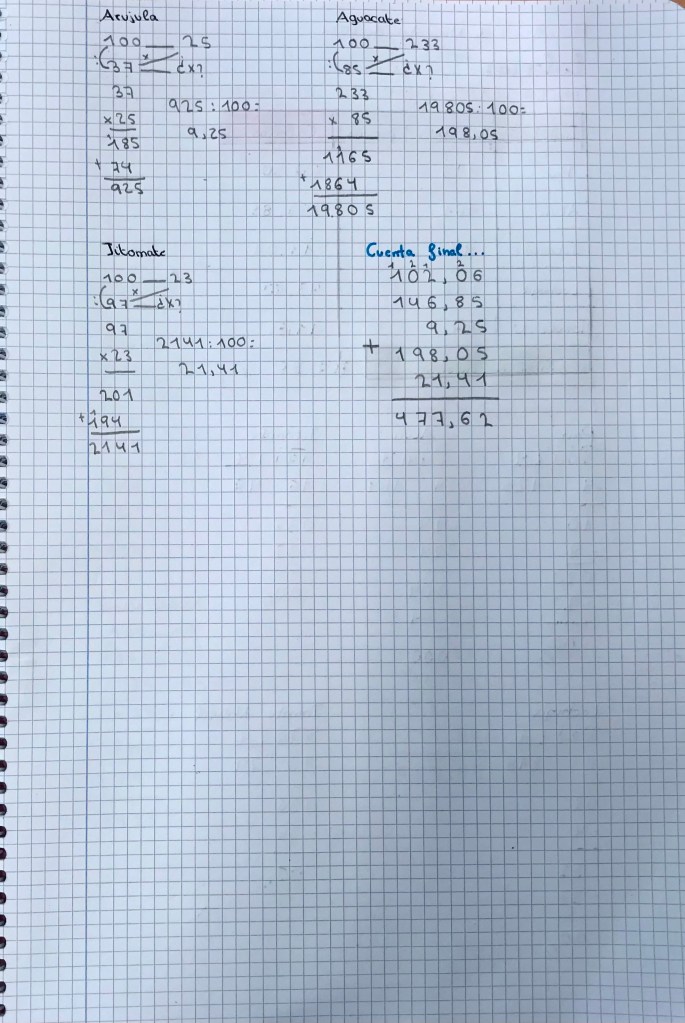 Arujula
100 — 25
:(37 x — ¿x?
37
x25
185
+ 74
925
925:100=
9,25
Aguacate
100 — 233
:(85 x — ¿x?
233
x 85
1165
+1864
19805
19805:100=
198,05
Jitomate
100 — 23
:(97 x — ¿x?
97
x23
201
+194
2141
2141:100=
21,41
Cuenta final...
1 2 1 2
102,06
146,85
9,25
+ 198,05
21,41
477,62